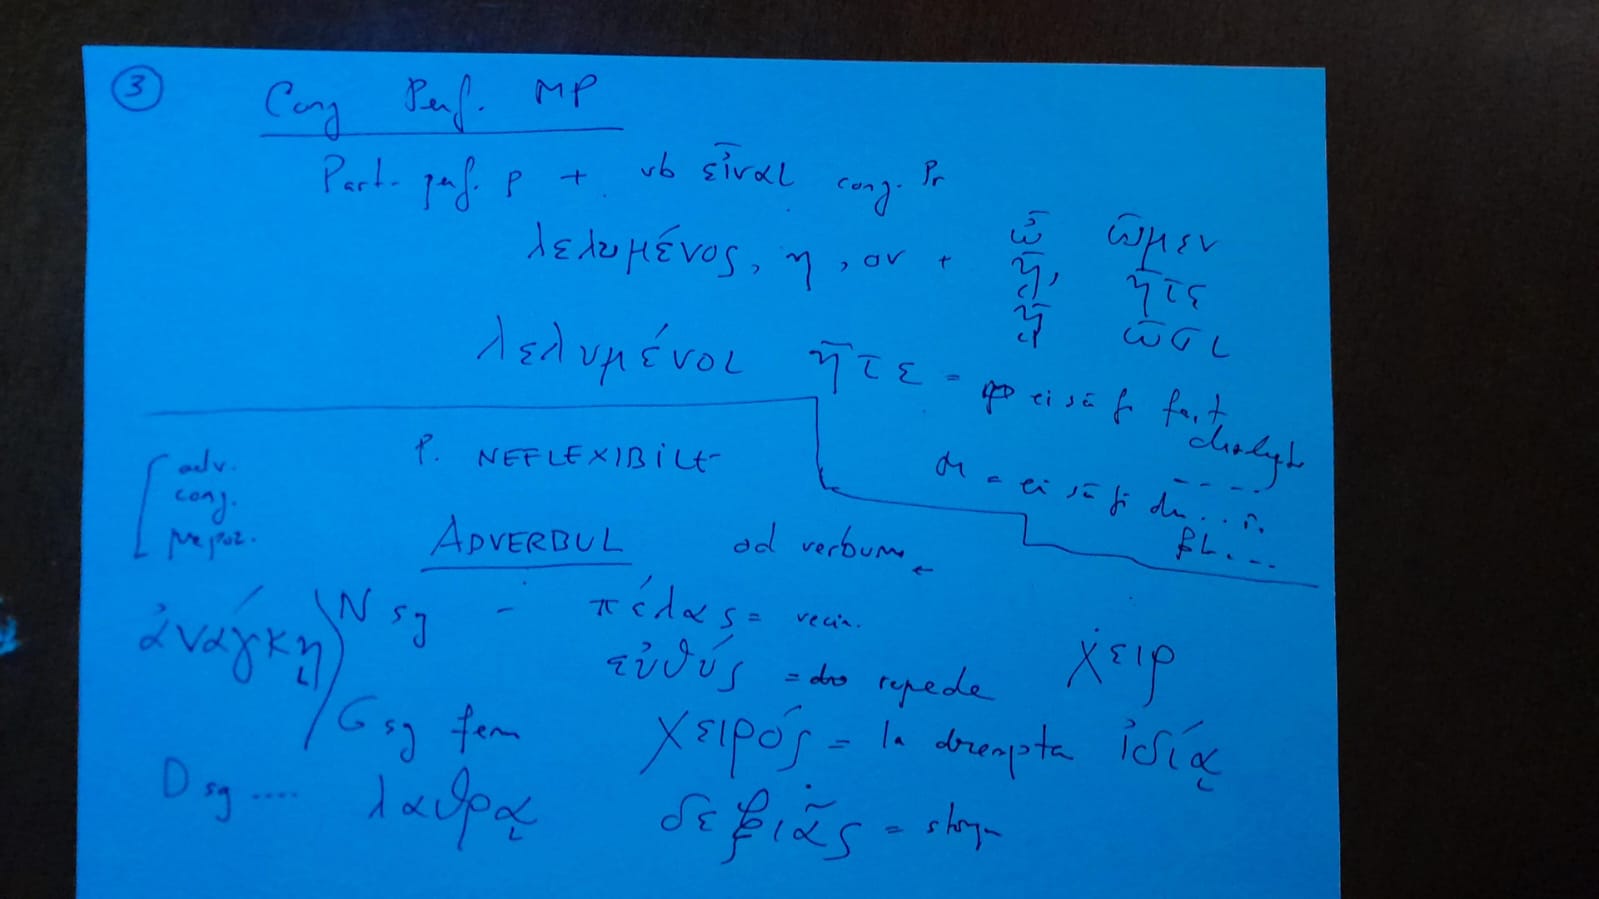 3
Conj Perf. MP
Part. perf. P + vb εἶναι conj. Pr
λελυμένος, η, ον + ὦ ὦμεν
ᾖς ἦτε
ᾖ ὦσι
λελυμένοι ἦτε = ei să fi fost
dezlegați
= ei să fi
P. NEFLEXIBILE
adv.
conj.
prepoz.
ADVERBUL ad verbum
ἀνάγκῃ
N sg - πέλας = vecin.
εὐθύς = repede χειρ
G sg fem χειρός = la dreapta ἰδίᾳ
D sg .... λαυρᾳ δεξιᾶς = stânga